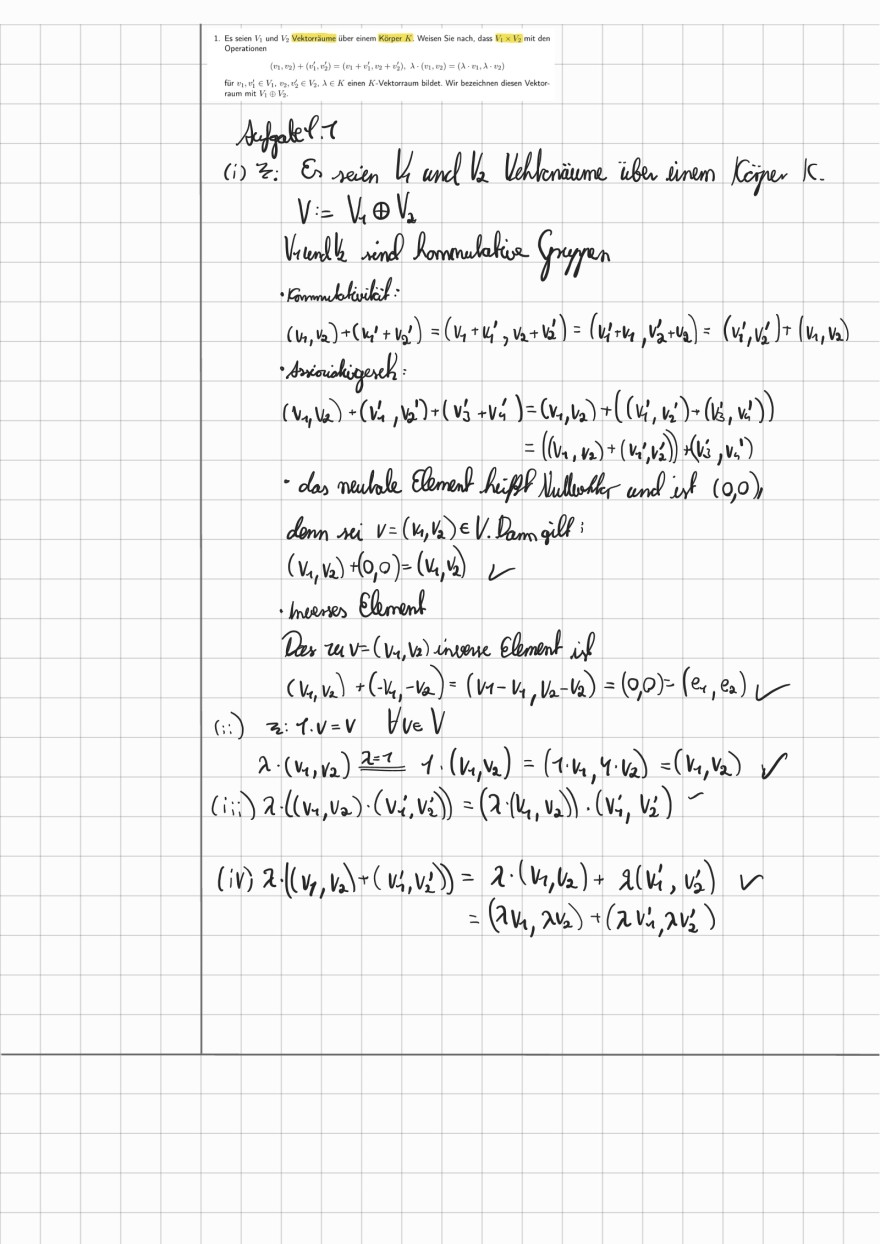 1. Es seien V₁ und V₂ Vektorräume über einem Körper K. Weisen Sie nach, dass V₁ × V₂ mit den
Operationen
(v₁, v₂) + (v₁', v₂') = (v₁ + v₁', v₂ + v₂'), λ · (v₁, v₂) = (λ · v₁, λ · v₂)
für v₁, v₁' ∈ V₁, v₂, v₂' ∈ V₂, λ ∈ K einen K-Vektorraum bildet. Wir bezeichnen diesen Vektor-
raum mit V₁ ⊕ V₂.
Aufgabe 1.1
(i) z: Es seien V₁ und V₂ Vektorräume über einem Körper K.
V := V₁ ⊕ V₂
V₁ und V₂ sind kommutative Gruppen
• Kommutativität:
(v₁, v₂) + (v₁' + v₂') = (v₁ + v₁', v₂ + v₂') = (v₁' + v₁, v₂' + v₂) = (v₁', v₂') + (v₁, v₂)
(v₁, v₂) + (v₁', v₂') + (v₃' + v₄') = (v₁, v₂) + ((v₁', v₂') + (v₃', v₄'))
= ((v₁, v₂) + (v₁', v₂')) + (v₃', v₄')
• das neutrale Element heißt Nullvektor und ist (0,0),
denn sei v = (v₁, v₂) ∈ V. Dann gilt:
(v₁, v₂) + (0,0) = (v₁, v₂) ✓
• Inverses Element
Das zu v = (v₁, v₂) inverse Element ist
(v₁, v₂) + (-v₁, -v₂) = (v₁ - v₁, v₂ - v₂) = (0,0) = (e₁, e₂) ✓
(ii) z: 1 · v = v ∀ v ∈ V
λ · (v₁, v₂) λ=1 1 · (v₁, v₂) = (1 · v₁, 1 · v₂) = (v₁, v₂) ✓
(iii) λ · ((v₁, v₂) · (v₁', v₂')) = (λ · (v₁, v₂)) · (v₁', v₂') ✓
(iv) λ · ((v₁, v₂) + (v₁', v₂')) = λ · (v₁, v₂) + λ(v₁', v₂') ✓
= (λv₁, λv₂) + (λv₁', λv₂')